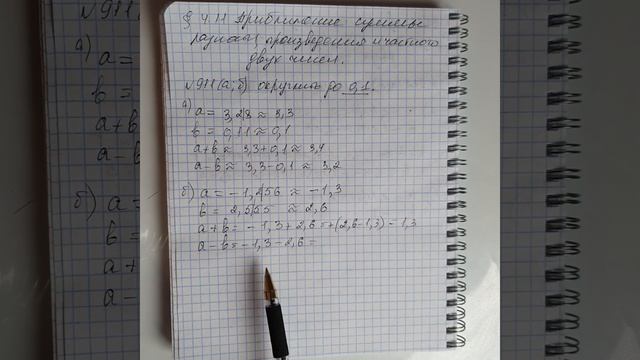 § 4.11 Приближение суммы
разности произведения и частного
двух чисел.
№911(а;б) округлить до 0,1.
а) a = 3,28 ≈ 3,3
b = 0,11 ≈ 0,1
a+b ≈ 3,3+0,1 ≈ 3,4
a-b ≈ 3,3-0,1 ≈ 3,2
б) a = -1,456 ≈ -1,3
b = 2,555 ≈ 2,6
a+b = -1,3+2,6=+(2,6-1,3)=1,3
a-b=-1,3-2,6=